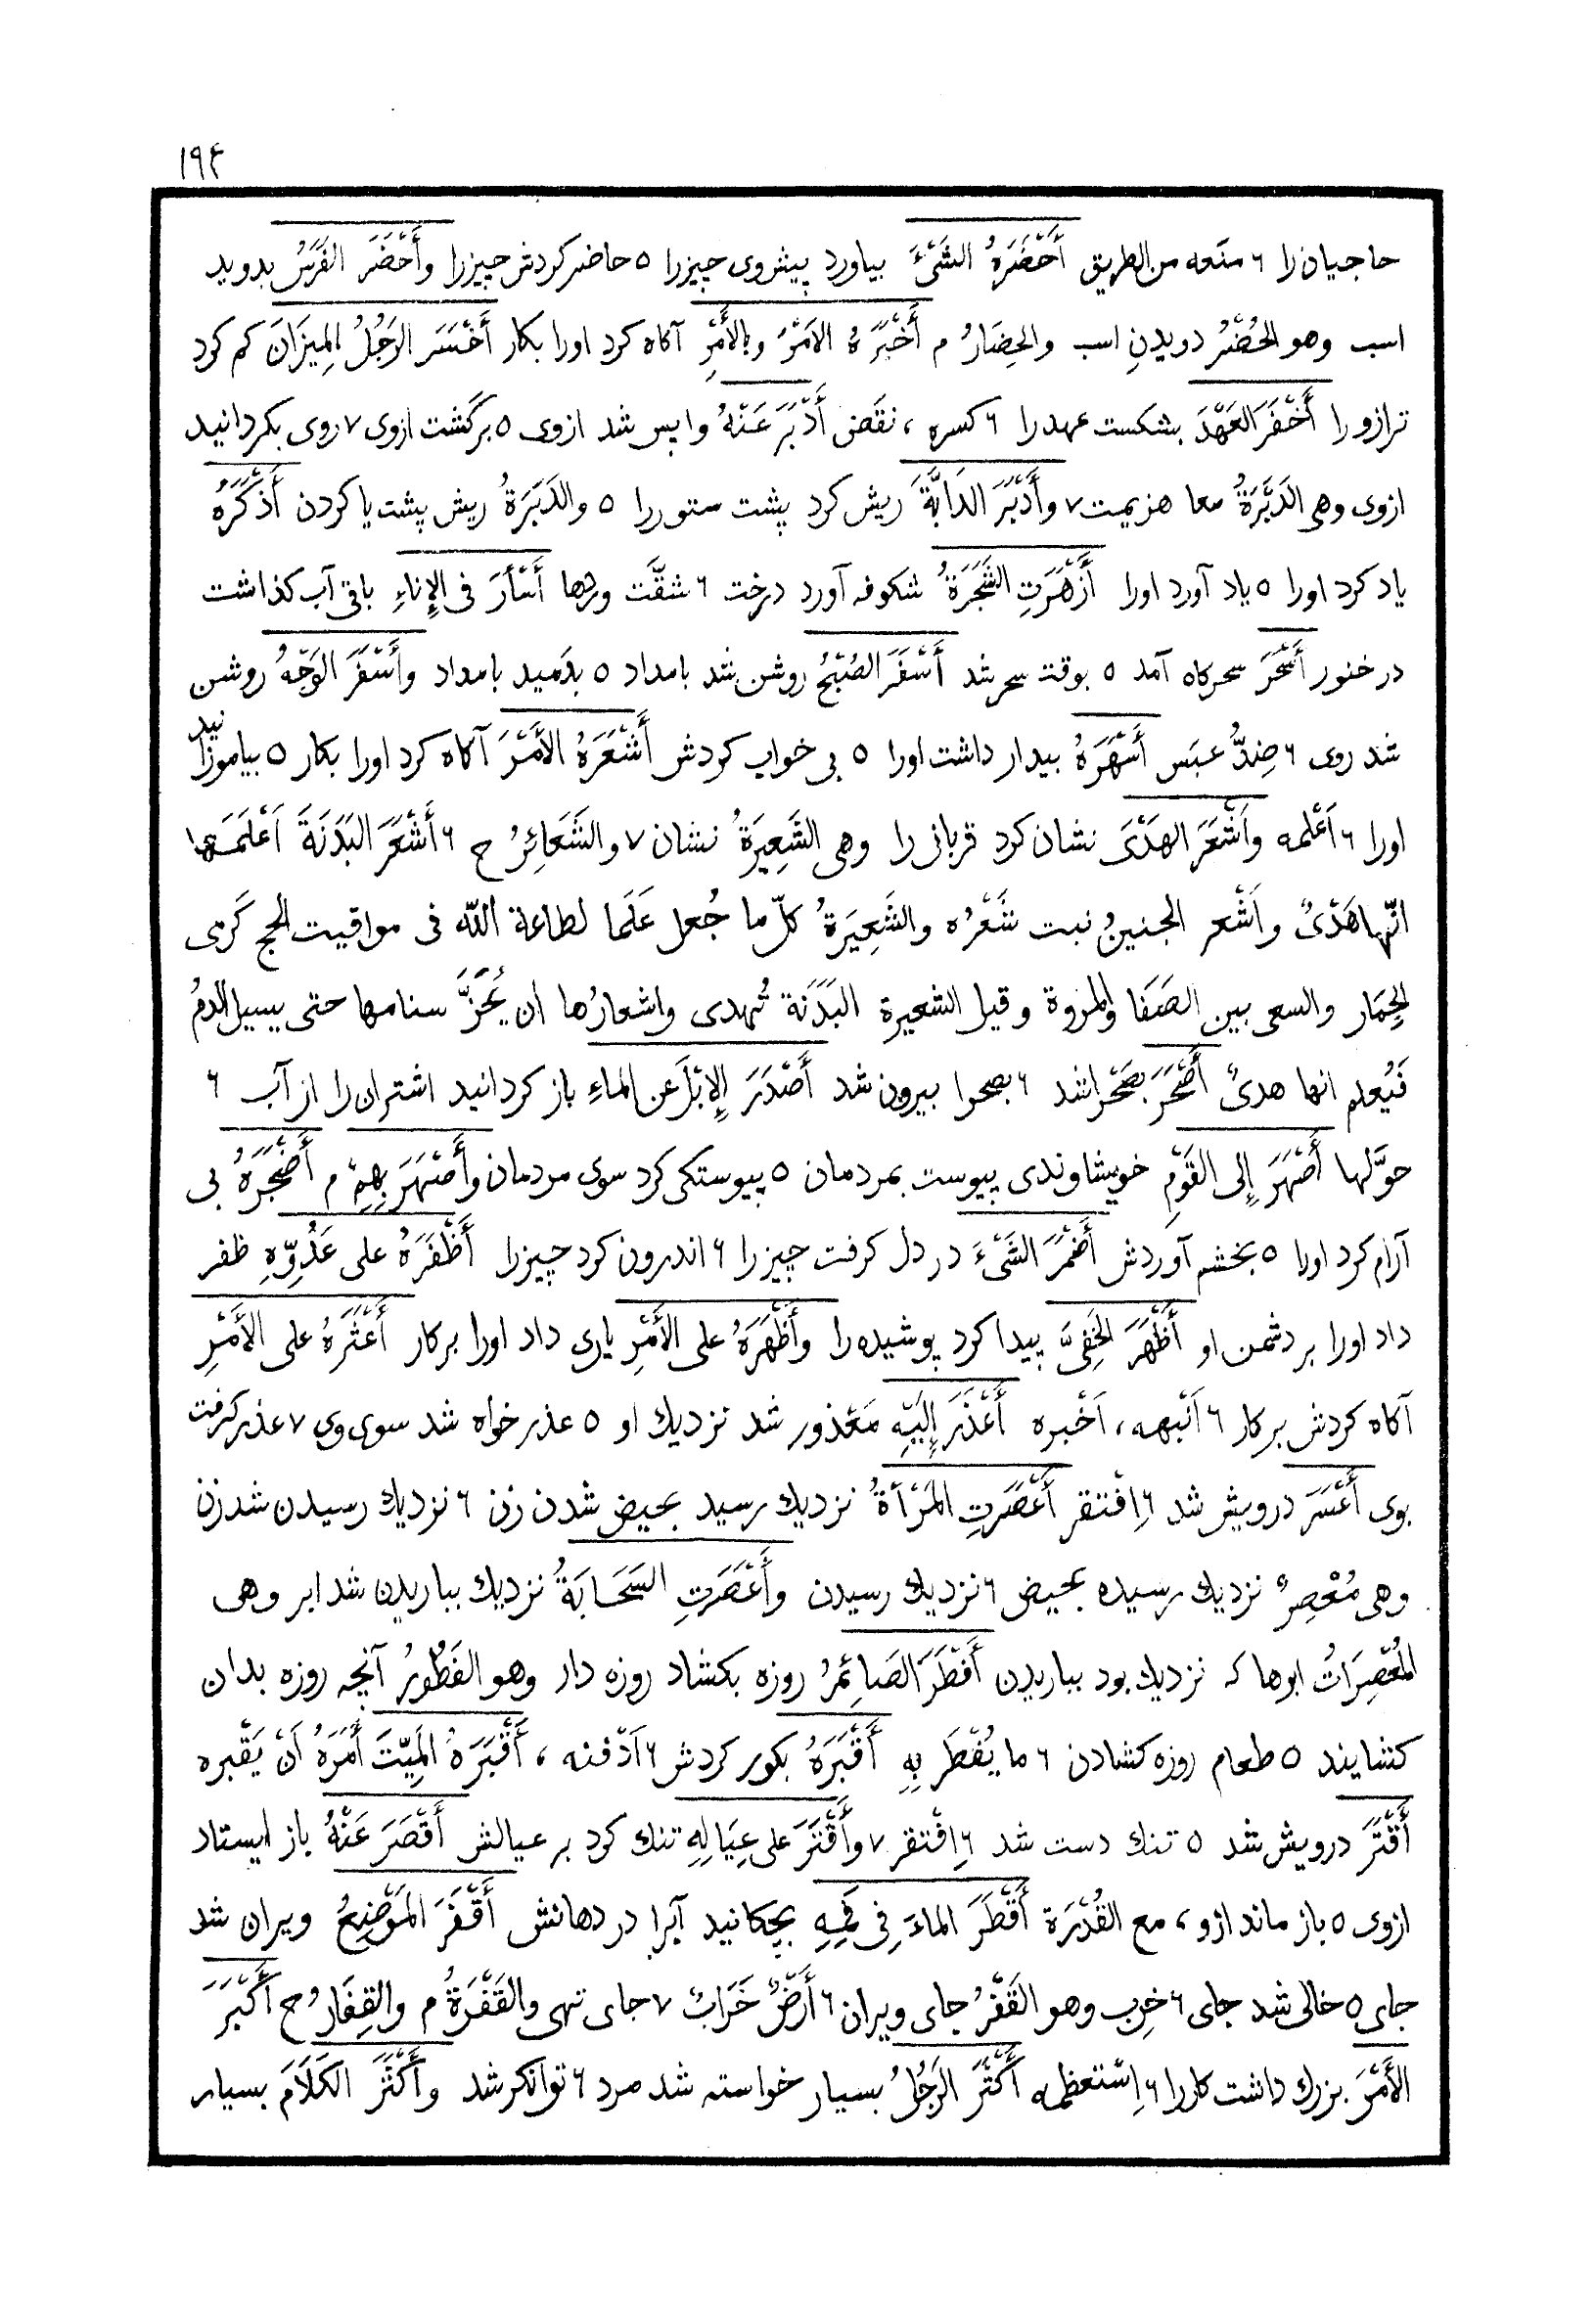 ۱۹۴
حاجیان را ۶ منَعه من الطریق أَحْضَرَهُ الشَیْءَ بیاورد پیش وی چیزرا ۵ حاضر کردش چیزرا وأَحْضَرَ الفَرَسُ بدوید
اسب وهو الحُضْرُ دویدنِ اسب والحِضَارُ م أَخْبَرَهُ الامَرَ وبالأَمْرِ آکاه کرد اورا بکار أَخْسَرَ الرَجُلُ المِیزَانَ کم کرد
ترازو را أَخْفَرَ العَهْدَ بشکست عهد را ۶ کسره ، نقَض أَدْبَرَ عَنْهُ واپس شد ازوی ۵ برکَشت ازوی ۷ روی بکردانید
ازوی وهی الدَبَرَةُ معا هزیمت ۷ وأَدْبَرَ الدَابَّةَ ریش کرد پشت ستوررا ۵ والدَبَرَةُ ریش پشت یا کردن أَذْكَرَهُ
یاد کرد اورا ۵ یاد آورد اورا أَزْهَرَتِ الشَجَرَةُ شکوفه آورد درخت ۶ شقّت وردها أَسْأَرَ فی الإِناءِ باقی آب کذاشت
در خنور أَسْحَرَ سحرکاه آمد ۵ بوقت سحر شد أَسْفَرَ الصُبْحُ روشن شد بامداد ۵ بدَمید بامداد وأَسْفَرَ الوَجْهُ روشن
شد روی ۶ ضِدُّ عبَس أَسْهَرَهُ بیدار داشت اورا ۵ بی خواب کردش أَشْعَرَهُ الأَمْرَ آکاه کرد اورا بکار ۵ بیاموزانید
اورا ۶ اَعْلمه وأَشْعَرَ الهَدْیَ نشان کرد قربانی را وهی الشَعِیرَةُ نشان ۷ والشَعَائِرُ ح ۶ أَشْعَرَ البَدَنَةَ اَعْلَمَها
انّها هَدْیٌ واَشْعر الجنینُ نبت شَعْرُه والشَعِیرَةُ کلّ ما جُعل عَلَما لطاعة الله فی مواقیت الحج کَرَمی
الجِمَار والسعی بین الصَفَا والمَروة وقیل الشعیرة البَدَنَة تُهدی واشعارُها ان یُحَزَّ سنامها حتی یسیل الدمُ
فَیُعلم انها هدیٌ أَصْحَرَ بصَحْرا شد ۶ بصحرا بیرون شد أَصْدَرَ الإِبْلَ عن الماءِ باز کردانید اشتران را از آب ۶
حوَّلها أَصْهَرَ إِلی القَوْمِ خویشاوندی پیوست بمردمان ۵ پیوستکی کرد سوی مردمان وأَصْهَرَ بِهِمْ م أَضْجَرَهُ بی
آرام کرد اورا ۵ بخشم آوردش أَضْمَرَ الشَیْءَ در دل کرفت چیز را ۶ اندرون کرد چیزرا أَظْفَرَهُ علی عَدُوِّهِ ظفر
داد اورا بر دشمن او أَظْهَرَ الخَفِیَّ پیدا کرد پوشیده را وأَظْهَرَهُ علی الأَمْرِ یاری داد اورا برکار أَعْثَرَهُ علی الأَمْرِ
آکاه کردش برکار ۶ اَنْبهه ، اَخْبره أَعْذَرَ إِلَیْهِ مَعْذور شد نزدیك او ۵ عذر خواه شد سوی وی ۷ عذر کرفت
بوی أَعْسَرَ درویش شد ۶ اِفْتقر أَعْصَرَتِ المَرْأَةُ نزدیك رسید بحیض شدن زن ۶ نزدیك رسیدن شد زن
وهی مُعْصِرٌ نزدیك رسیده بحیض ۶ نزدیك رسیدن وأَعْصَرَتِ السَحَابَةُ نزدیك بباریدن شد ابر وهی
المُعْصِرَاتُ ابرها که نزدیك بود بباریدن أَفْطَرَ الصَائِمُ روزه بکشاد روزه دار وهو الفَطُورُ آنچه روزه بدان
کشایند ۵ طعام روزه کشادن ۶ ما یُفْطَر بِهِ أَقْبَرَهُ بکور کردش ۶ اَدْفنه ، أَقْبَرَهُ المَیّتَ أَمَرَهُ اَنْ یَقْبره
أَقْتَرَ درویش شد ۵ تنك دست شد ۶ اِفْتقر ۷ وأَقْتَرَ علی عِیَالِهِ تنك کرد بر عیالش أَقْصَرَ عَنْهُ باز ایستاد
ازوی ۵ باز ماند ازو ، مع القُدْرَة أَقْطَرَ الماءَ فِی فَمِهِ بچکانید آبرا در دهانش أَقْفَرَ المَوْضِعُ ویران شد
جای ۵ خالی شد جای ۶ خرِب وهو القَفْرُ جای ویران ۶ أَرْضٌ خَرَابٌ ۷ جای تهی والقَفْرَةُ م والقِفَارُ ح أَكْبَرَ
الأَمْرَ بزرك داشت کاررا ۶ اِسْتعظمه أَكْثَرَ الرَجُلُ بسیار خواسته شد مرد ۶ توانکر شد وأَكْثَرَ الكَلَامَ بسیار